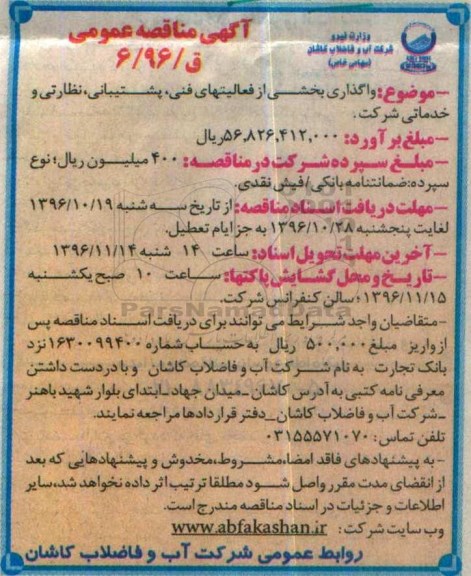 آگهی مناقصه عمومی
ق/۶/۹۶
وزارت نیرو
شرکت آب و فاضلاب کاشان
(سهامی خاص)
-موضوع: واگذاری بخشی از فعالیتهای فنی، پشتیبانی، نظارتی و
خدماتی شرکت.
-مبلغ برآورد: ۵۶,۸۲۶,۴۱۲,۰۰۰ریال
-مبلغ سپرده شرکت در مناقصه: ۴۰۰ میلیون ریال؛ نوع
سپرده: ضمانتنامه بانکی/فیش نقدی.
-مهلت دریافت اسناد مناقصه: از تاریخ سه شنبه ۱۳۹۶/۱۰/۱۹
لغایت پنجشنبه ۱۳۹۶/۱۰/۲۸ به جز ایام تعطیل.
-آخرین مهلت تحویل اسناد: ساعت ۱۴ شنبه ۱۳۹۶/۱۱/۱۴
-تاریخ و محل گشایش پاکتها: ساعت ۱۰ صبح یکشنبه
۱۳۹۶/۱۱/۱۵؛ سالن کنفرانس شرکت.
-متقاضیان واجد شرایط می توانند برای دریافت اسناد مناقصه پس
از واریز مبلغ ۵۰۰,۰۰۰ ریال به حساب شماره ۱۶۳۰۰۹۹۴۰۰ نزد
بانک تجارت به نام شرکت آب و فاضلاب کاشان و با در دست داشتن
معرفی نامه کتبی به آدرس کاشان_میدان جهاد_ابتدای بلوار شهید باهنر
_شرکت آب و فاضلاب کاشان_دفتر قراردادها مراجعه نمایند.
تلفن تماس: ۰۳۱۵۵۵۷۱۰۷۰
-به پیشنهادهای فاقد امضا،مشروط،مخدوش و پیشنهادهایی که بعد
از انقضای مدت مقرر واصل شود مطلقا ترتیب اثر داده نخواهد شد،سایر
اطلاعات و جزئیات در اسناد مناقصه مندرج است.
وب سایت شرکت: www.abfakashan.ir
روابط عمومی شرکت آب و فاضلاب کاشان
ParsNamadData